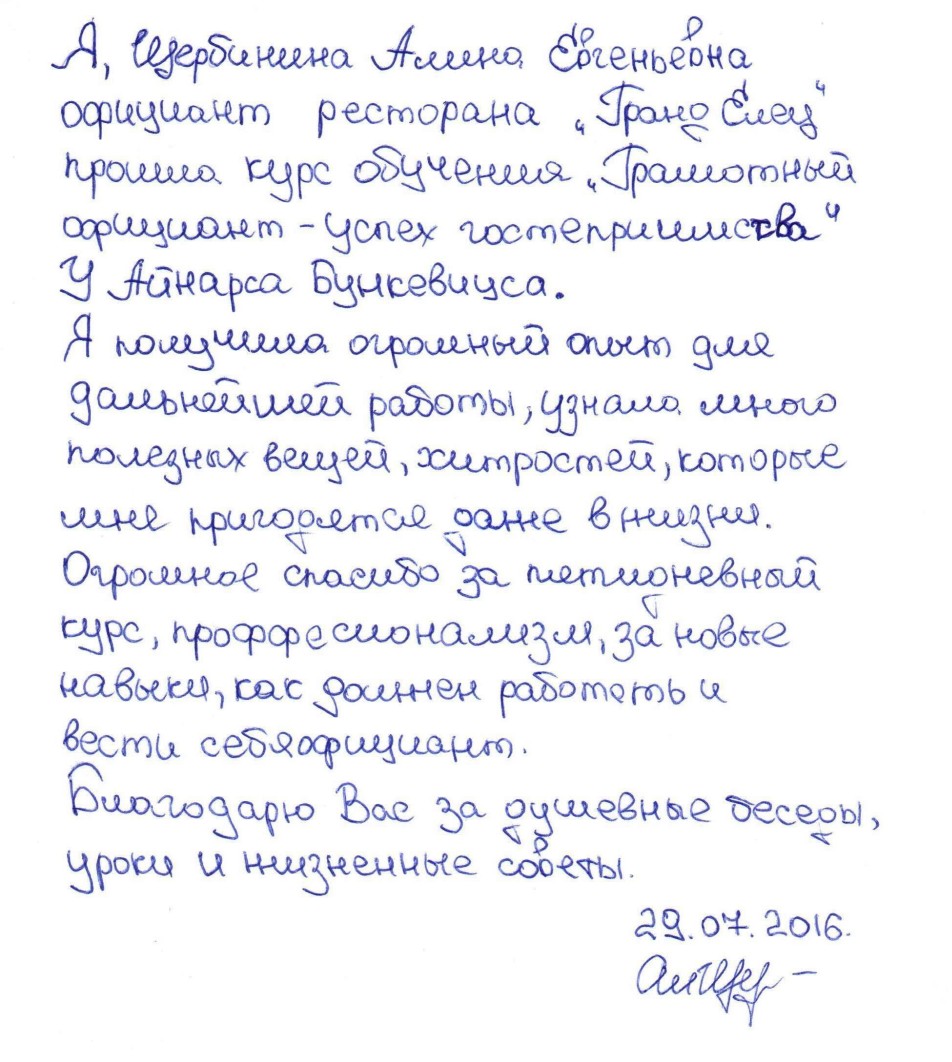 Я, Щербинина Алина Евгеньевна
официант ресторана „Гранд Елец“
прошла курс обучения „Грамотный
официант – успех гостеприимства“
У Айнарса Бункевицса.
Я получила огромный опыт для
дальнейшей работы, узнала много
полезных вещей, хитростей, которые
мне пригодятся даже в жизни.
Огромное спасибо за пятидневный
курс, проффесионализм, за новые
навыки, как должен работать и
вести себя официант.
Благодарю Вас за душевные беседы,
уроки и жизненные советы.
29.07.2016.